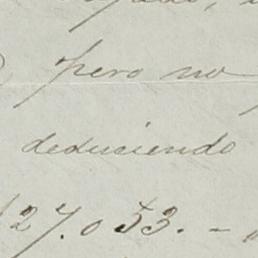 pero no
deduciendo
127.053.-